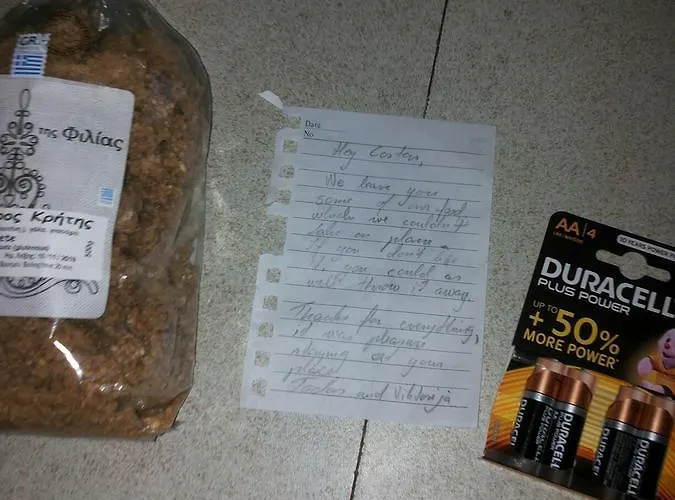 GR
της Φιλίας
ρος Κρήτης
500g
Date
No
Hey Costas,
We leave you
some of our food
which we couldn't
take on plane.
If you don't like
it, you could as
well throw it away.
Thanks for everything,
it was pleasure
staying at your
place
and Viktorija
AA 4
10 YEARS POWER
DURACELL
PLUS POWER
UP TO
+ 50%
MORE POWER*
DURACELL
DURACELL
DURACELL
DURACELL